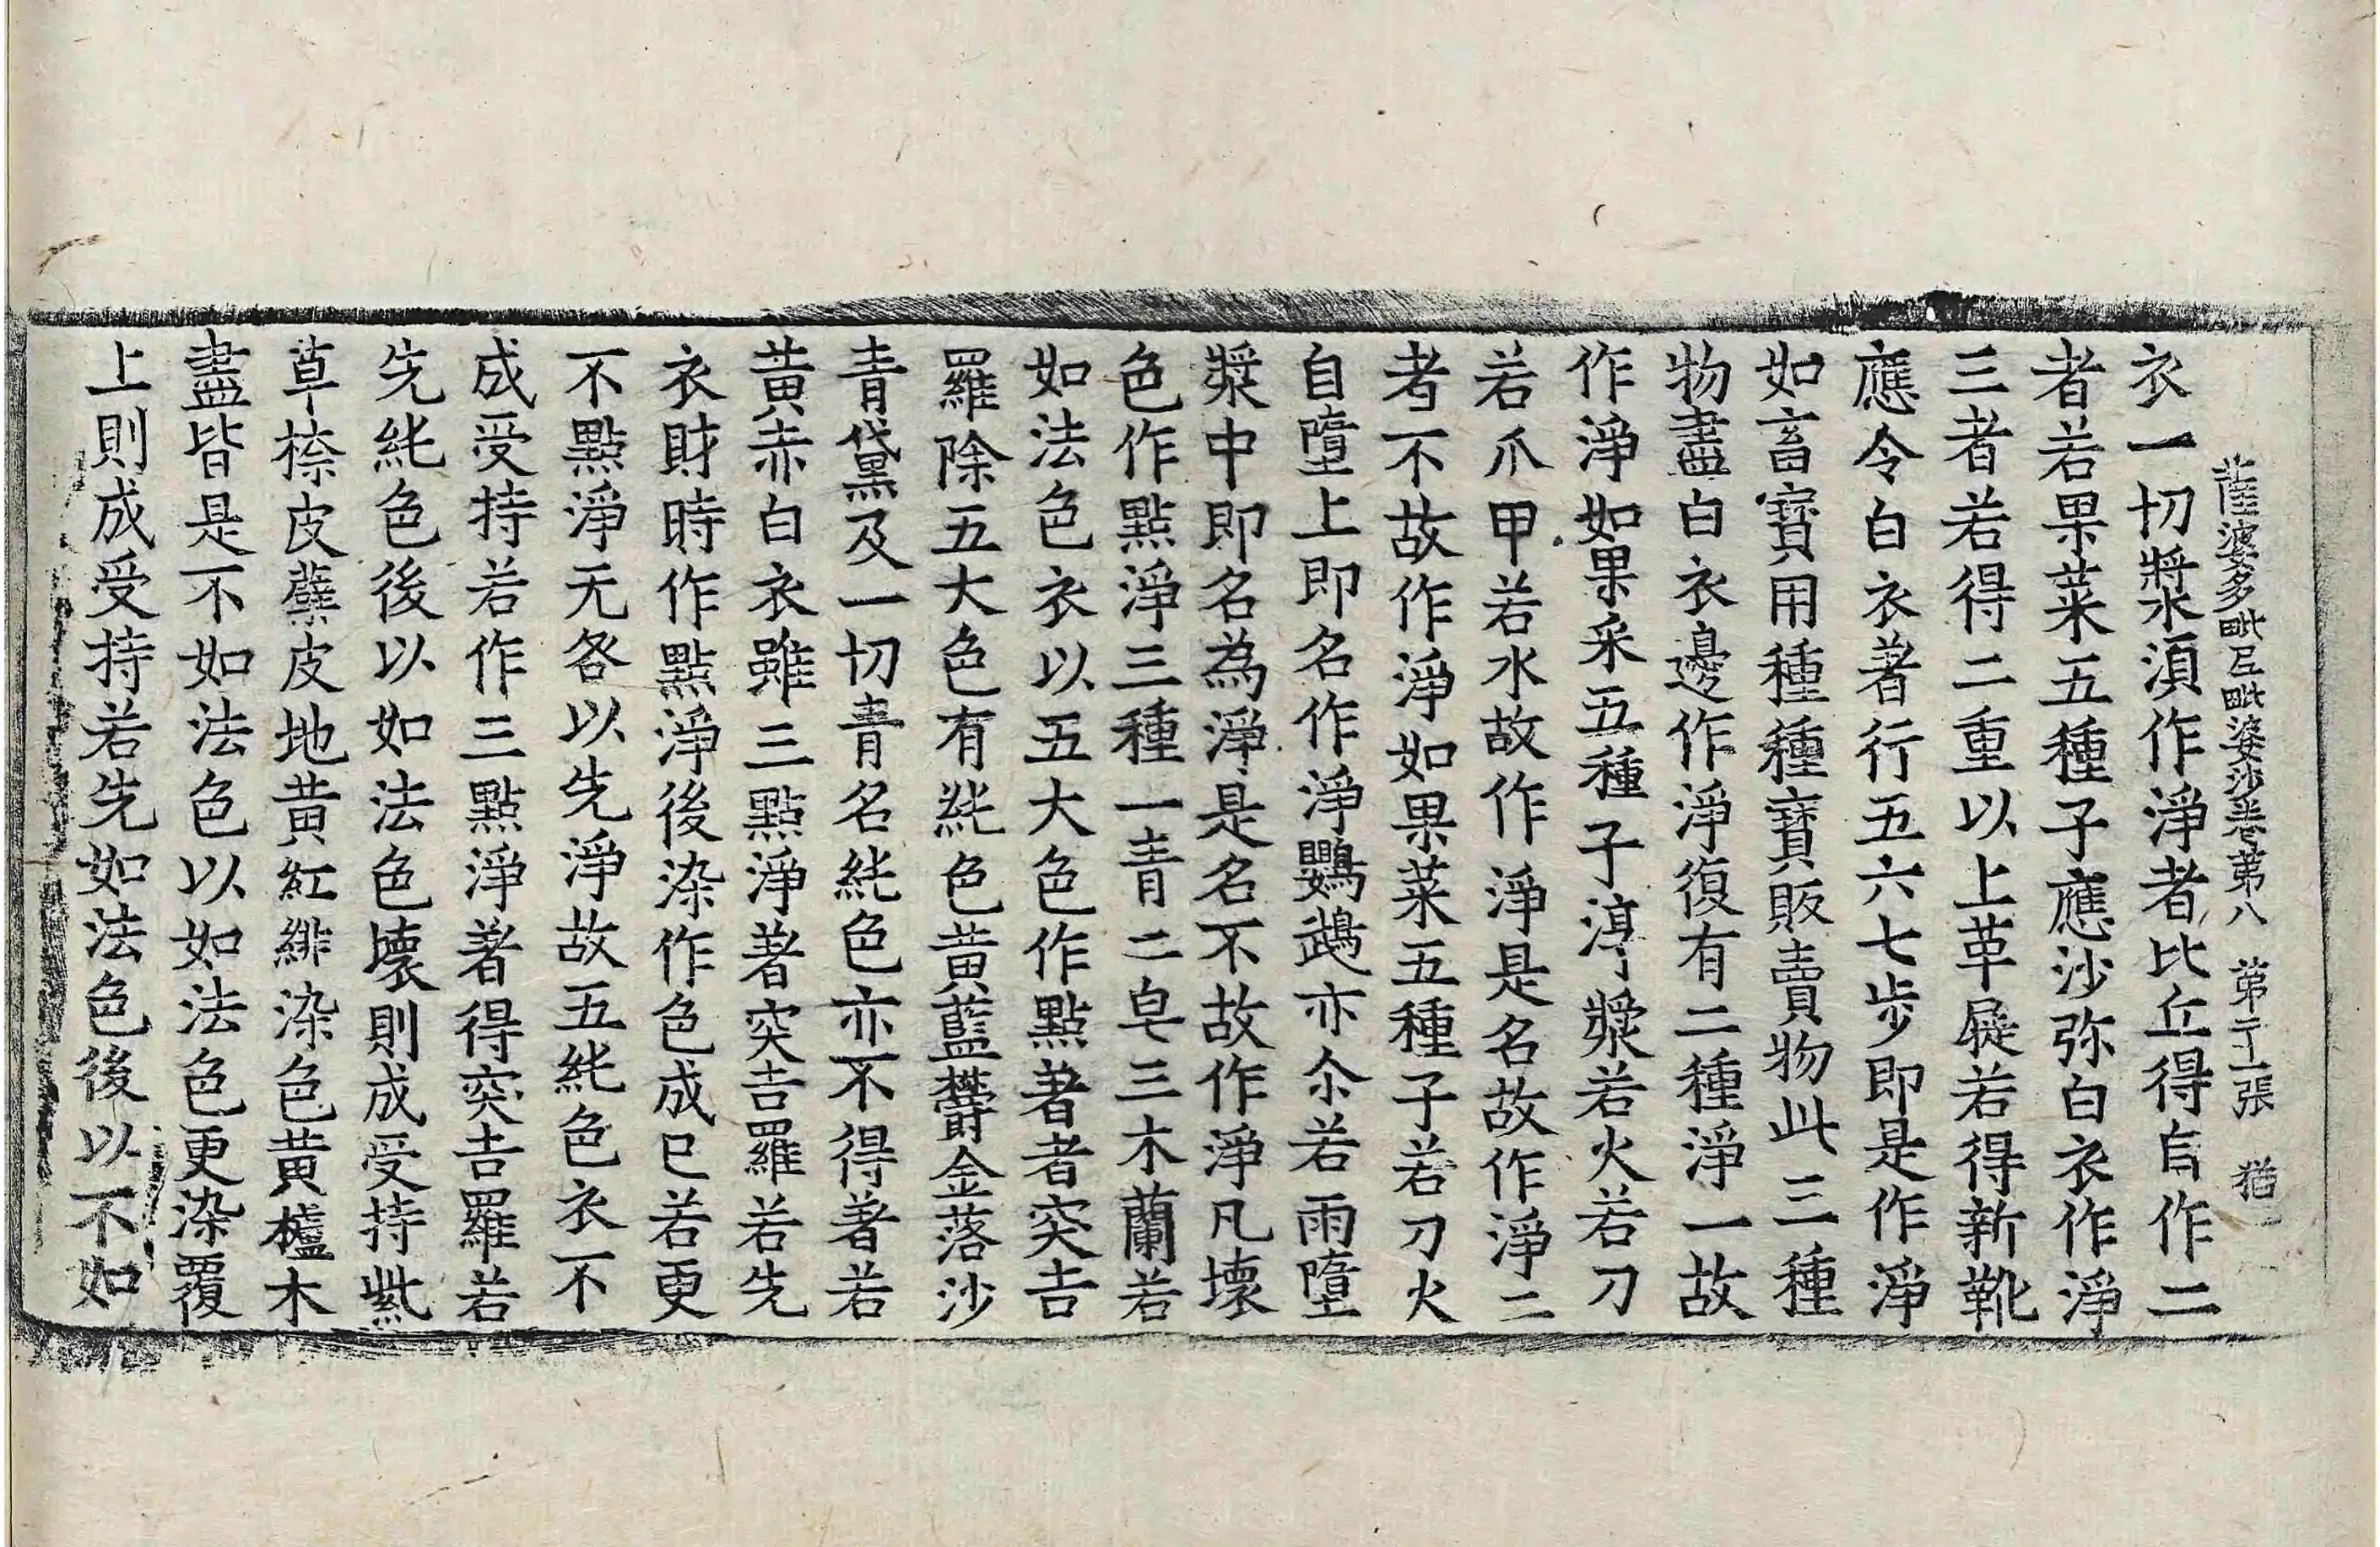 薩婆多毗尼毗婆沙卷第八 第 張 猶
衣一切漿水湏作淨者比丘得自作二
者若果菜五種子應沙弥白衣作淨
三者若得二重以上革屣若得新靴
應令白衣著行五六七步即是作淨
如畜寶用種種寶販賣物此三種
物盡白衣邊作淨復有二種淨一故
作淨如果采五種子渟漿若火若刀
若爪甲若水故作淨是名故作淨二
者不故作淨如果菜五種子若刀火
自墮上即名作淨鸚鵡亦尒若雨墮
漿中即名為淨是名不故作淨凡壞
色作點淨三種一青二皂三木蘭若
如法色衣以五大色作點著者突吉
羅除五大色有純色黃藍欝金落沙
青黛及一切青名純色亦不得著若
黃赤白衣雖三點淨著突吉羅若先
衣財時作點淨後染作色成已若更
不點淨无咎以先淨故五純色衣不
成受持若作三點淨著得突吉羅若
先純色後以如法色壞則成受持紫
草㮈皮蘗皮地黄紅緋染色黄櫨木
盡皆是不如法色以如法色更染覆
上則成受持若先如法色後以不如